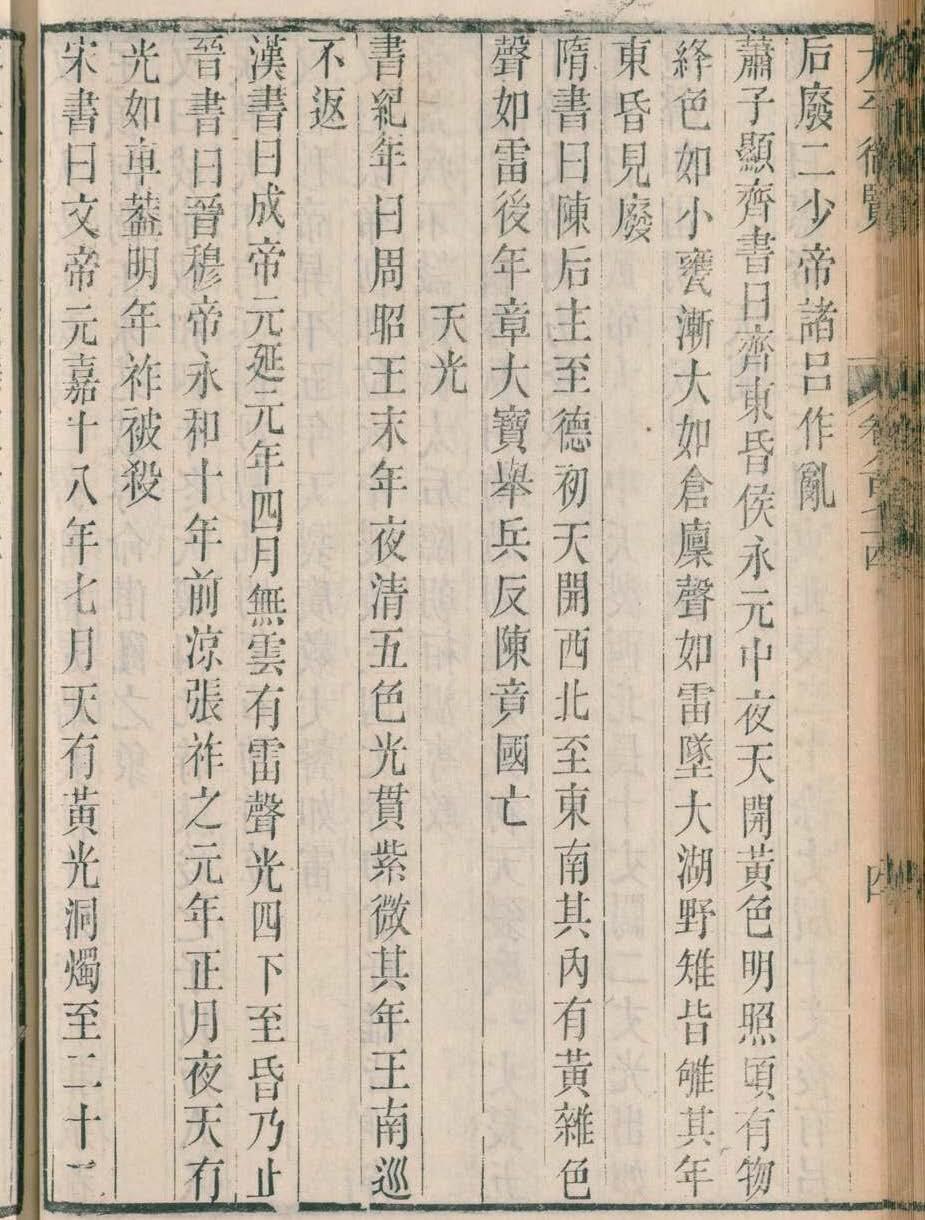 太平御覽 卷八百七十四 四
后廢二少帝諸呂作亂
蕭子顯齊書曰齊東昏侯永元中夜天開黃色明照頃有物
絳色如小甕漸大如倉廩聲如雷墜大湖野雉皆雊其年
東昏見廢
隋書曰陳后主至德初天開西北至東南其內有黃雜色
聲如雷後年章大寶舉兵反陳竟國亡
天光
書紀年曰周昭王末年夜清五色光貫紫微其年王南巡
不返
漢書曰成帝元延元年四月無雲有雷聲光四下至昏乃止
晉書曰晉穆帝永和十年前涼張祚之元年正月夜天有
光如車蓋明年祚被殺
宋書曰文帝元嘉十八年七月天有黃光洞燭至二十